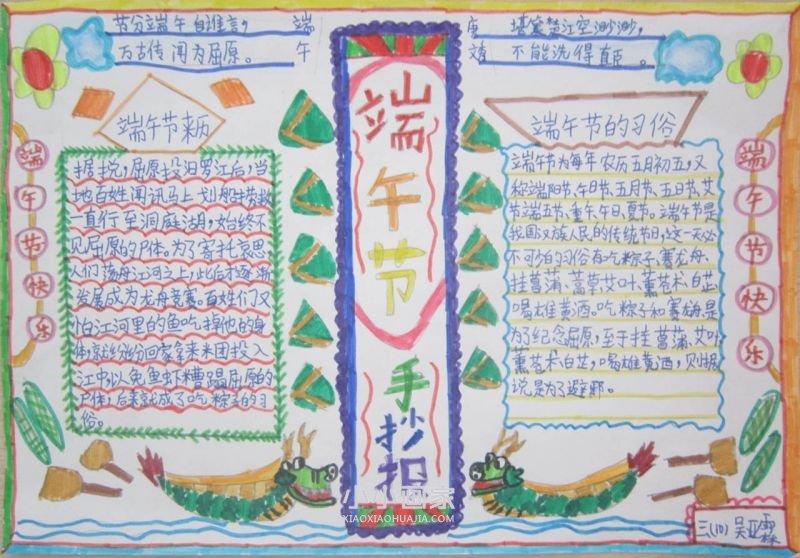 节分端午自谁言,
万古传闻为屈原。
端
午
唐
文秀
堪笑楚江空渺渺,
不能洗得直臣。
端午节来历
据说,屈原投汨罗江后,当
地百姓闻讯马上划船捞救
一直行至洞庭湖,始终不
见屈原的尸体。为了寄托哀思
人们荡舟江河之上,此后才逐渐
发展成为龙舟竞赛。百姓们又
怕江河里的鱼吃掉他的身
体,就纷纷回家拿来米团投入
江中,以免鱼虾糟蹋屈原的
尸体,后来就成了吃粽子的习
俗。
端午节快乐
端午节
手抄报
端午节的习俗
端午节为每年农历五月初五,又
称端阳节、午日节、五月节、五日节、艾
节、端五、重午、午日、夏节。端午节是
我国汉族人民的传统节日,这一天必
不可少的习俗有:吃粽子、赛龙舟、
挂菖蒲、蒿草、艾叶、薰苍术、白芷
喝雄黄酒。吃粽子和赛龙舟,是
为了纪念屈原,至于挂菖蒲、艾叶
薰苍术、白芷,喝雄黄酒,则据
说是为了避邪。
端午节快乐
小小画家
XIAOXIAOHUAJIA.COM
三(10) 吴亚霖